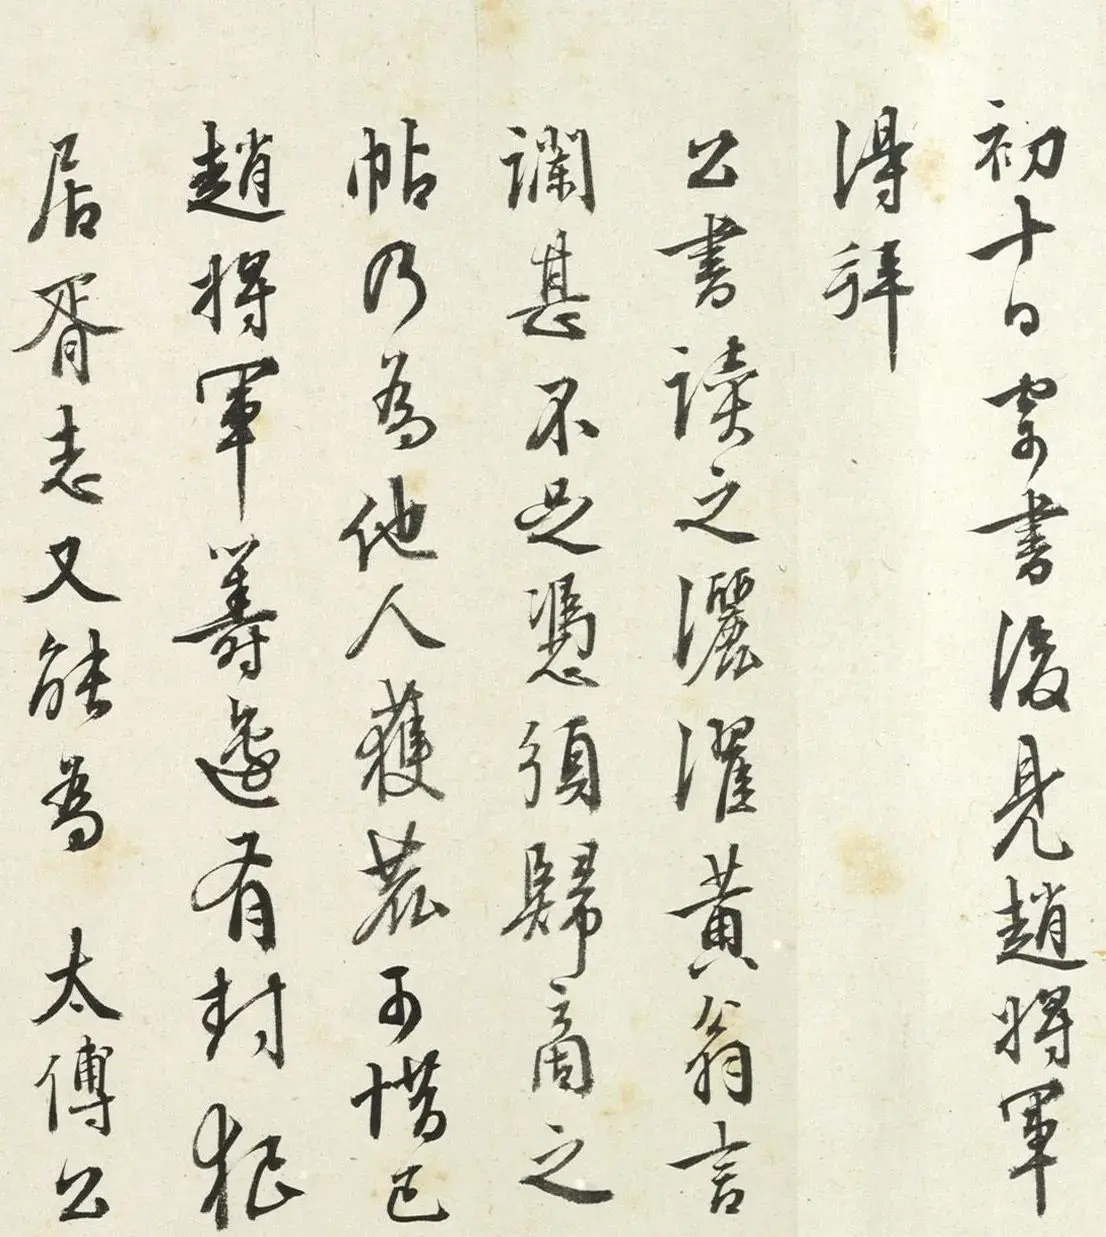 初十日寄書後見趙將軍
得拜
公書讀之灑濯黃翁言
讕甚不足憑須歸商之
帖乃為他人獲農可惜已
趙將軍籌邊有封狼
居胥志又能為 太傅公